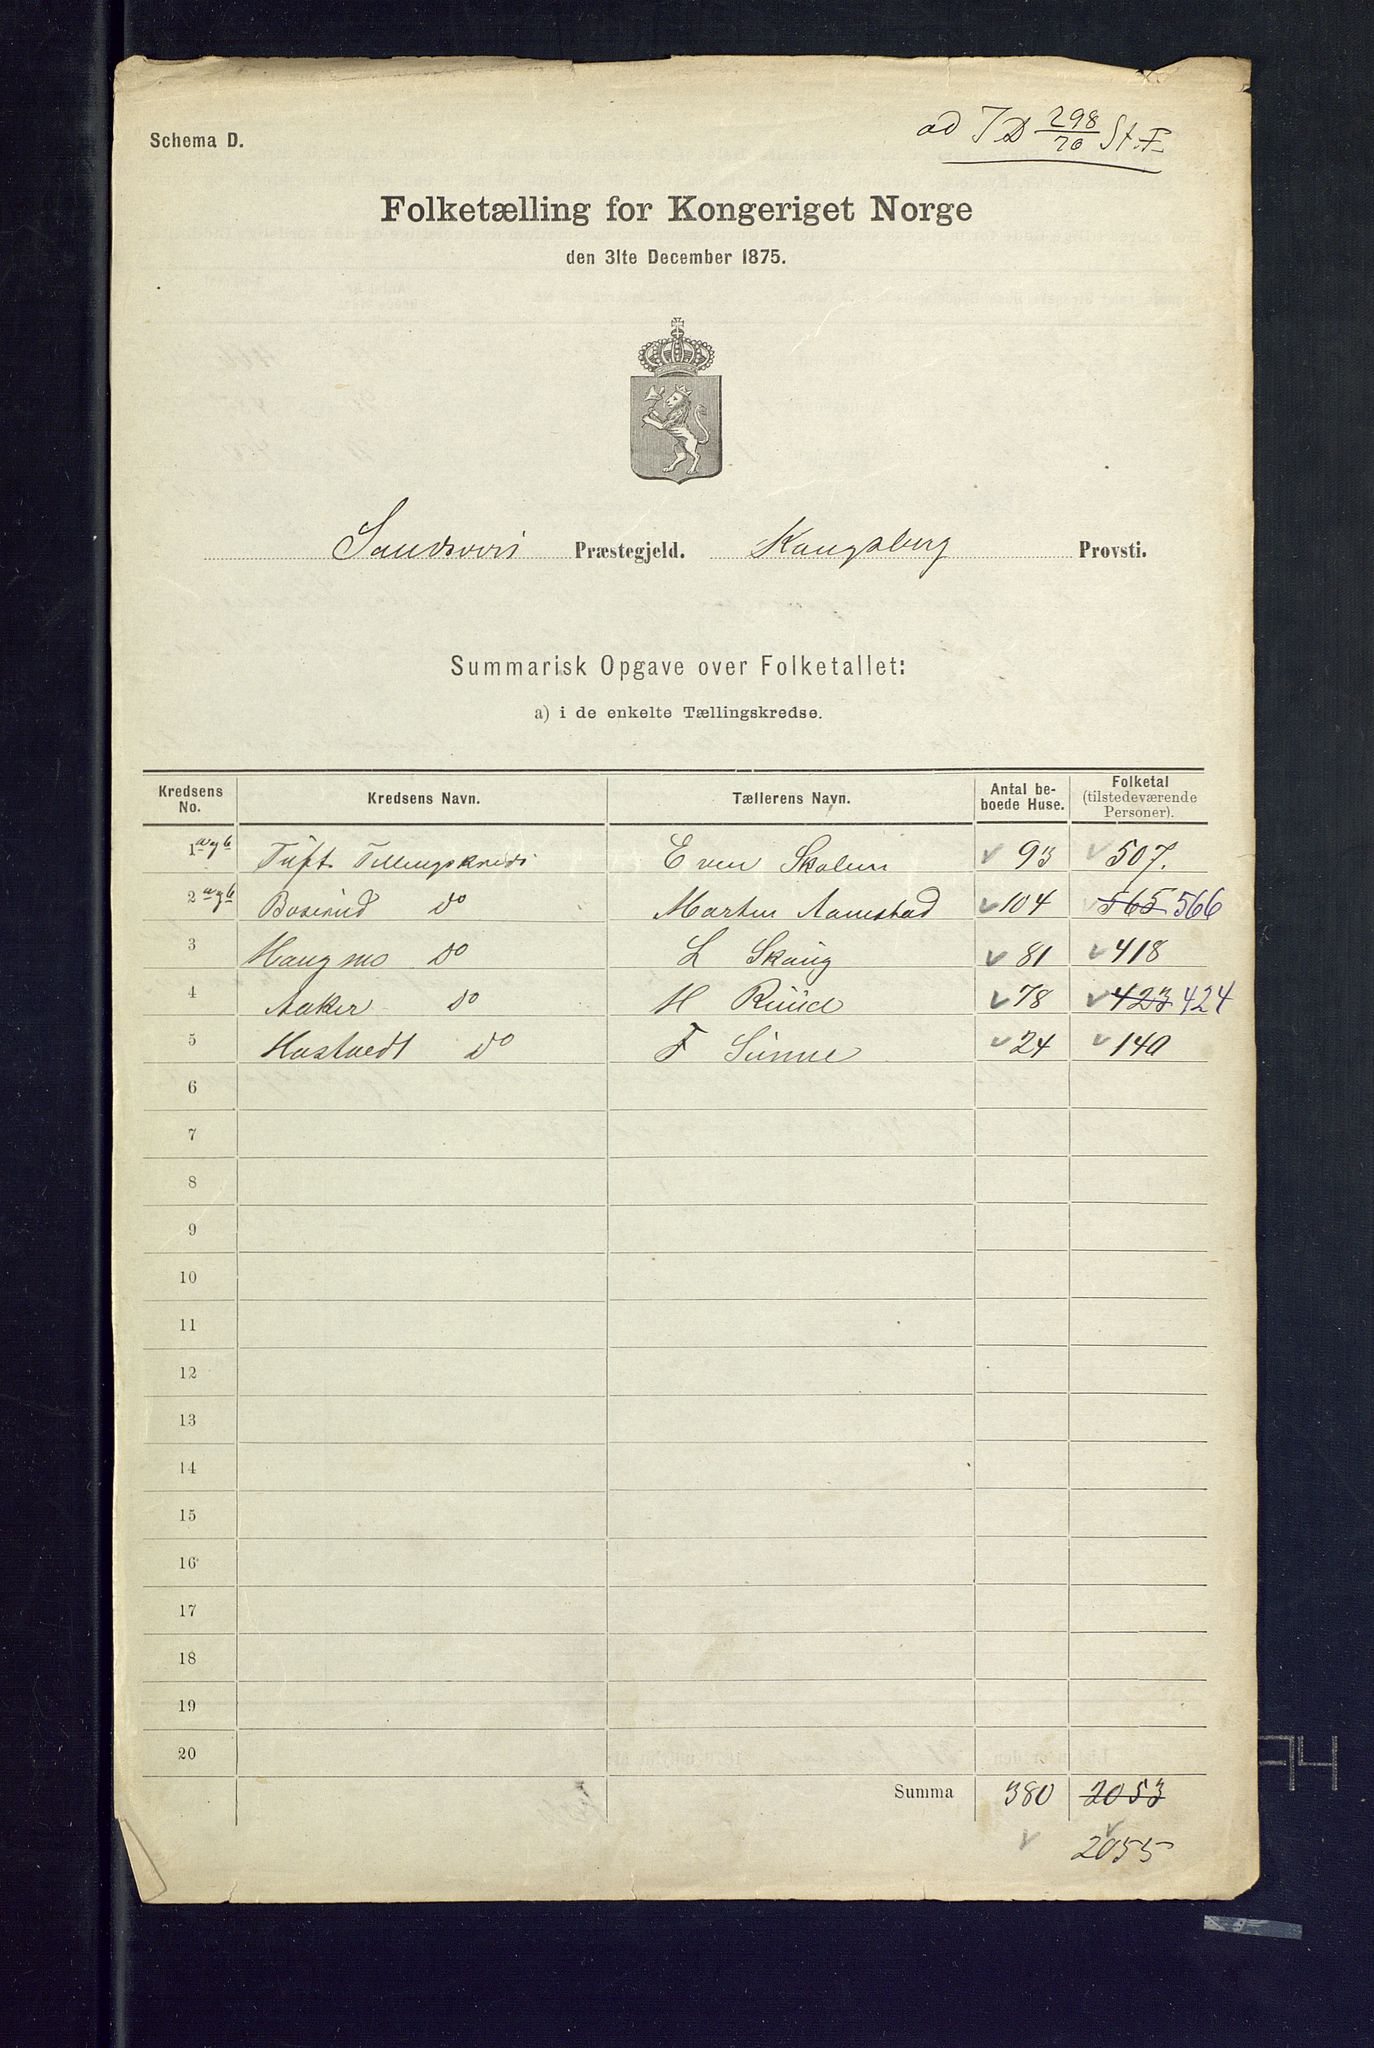 ad J D 298/70 St. F.
Schema D.
Folketælling for Kongeriget Norge
den 31te December 1875.
Sandsvers Præstegjeld. Kongsberg Provsti.
Summarisk Opgave over Folketallet:
a) i de enkelte Tællingskredse.
Kredsens No. Kredsens Navn. Tællerens Navn. Antal beboede Huse. Folketal (tilstedeværende Personer).
1 a og b Tuft Tellingskreds Even Skolin 93 507.
2 a og b Boserud do Martin Aamstad 104 565 566
3 Haugmo do L Skaug 81 418
4 Aaker do H Ruud 78 423 424
5 Hostvedt do F Sunne 24 140
6
7
8
9
10
11
12
13
14
15
16
17
18
19
20
Summa 380 2053
2055